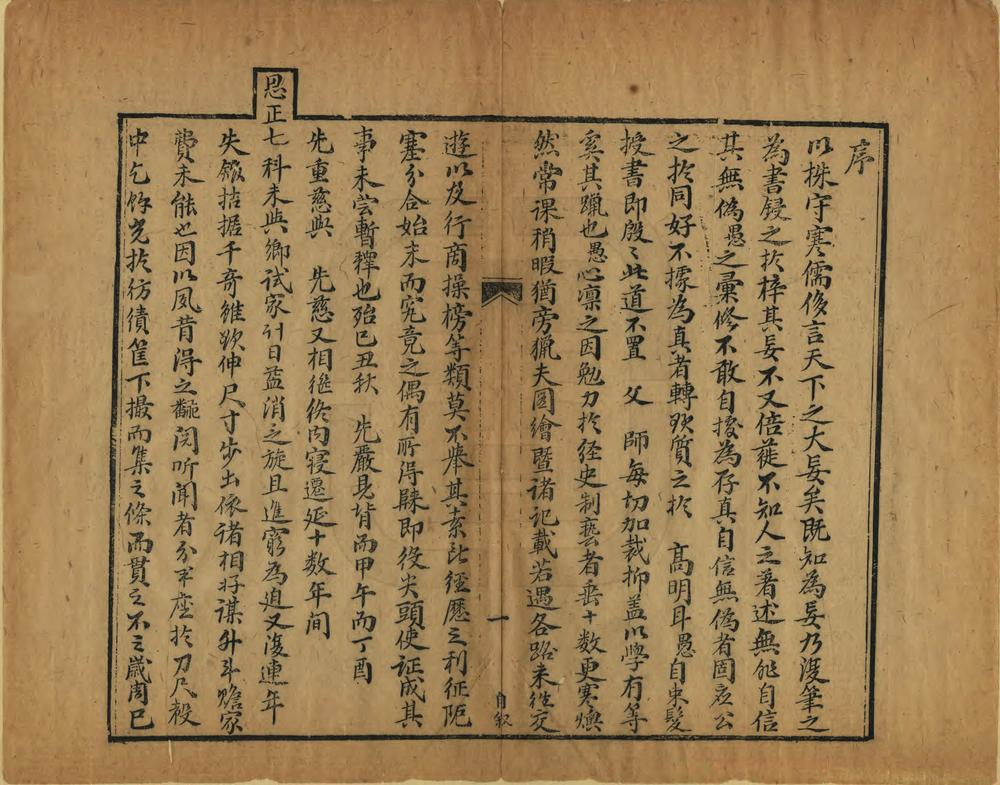 序
以株守寒儒侈言天下之大妄矣既知為妄乃復筆之
為書鋟之扵梓其妄不又倍蓰不知人之著述無能自信
其無偽愚之彙修不敢自據為存真自信無偽者固應公
之扵同好不據為真者轉欲質之扵 高明耳愚自束髮
授書即殷〻此道不置 父 師每切加裁抑盖以學有等
奚其躐也愚心凛之因勉力扵経史制藝者垂十数更寒燠
然常课稍暇猶旁獵夫圖繪暨诸记載若遇各路来往交
遊以及行商操榜等類莫不舉其素所徑歷之利征阨
塞分合始末而究竟之偶有所得録即役尖頭使证成其
事未尝暫釋也殆巳丑秋 先嚴見背而甲午而丁酉
先重慈與 先慈又相継终内寝遷延十数年间
恩正七科未與鄉試家计日益消之旋且進窮為迫又復連年
失館拮据千奇雖欲伸尺寸步出依诸相好謀升斗赡家
費未能也因以夙昔得之觀阅听聞者分半座扵刀尺殽
中乞馀光扵纺績筐下撮而集之條而貫之不三歲周已
一
自叙